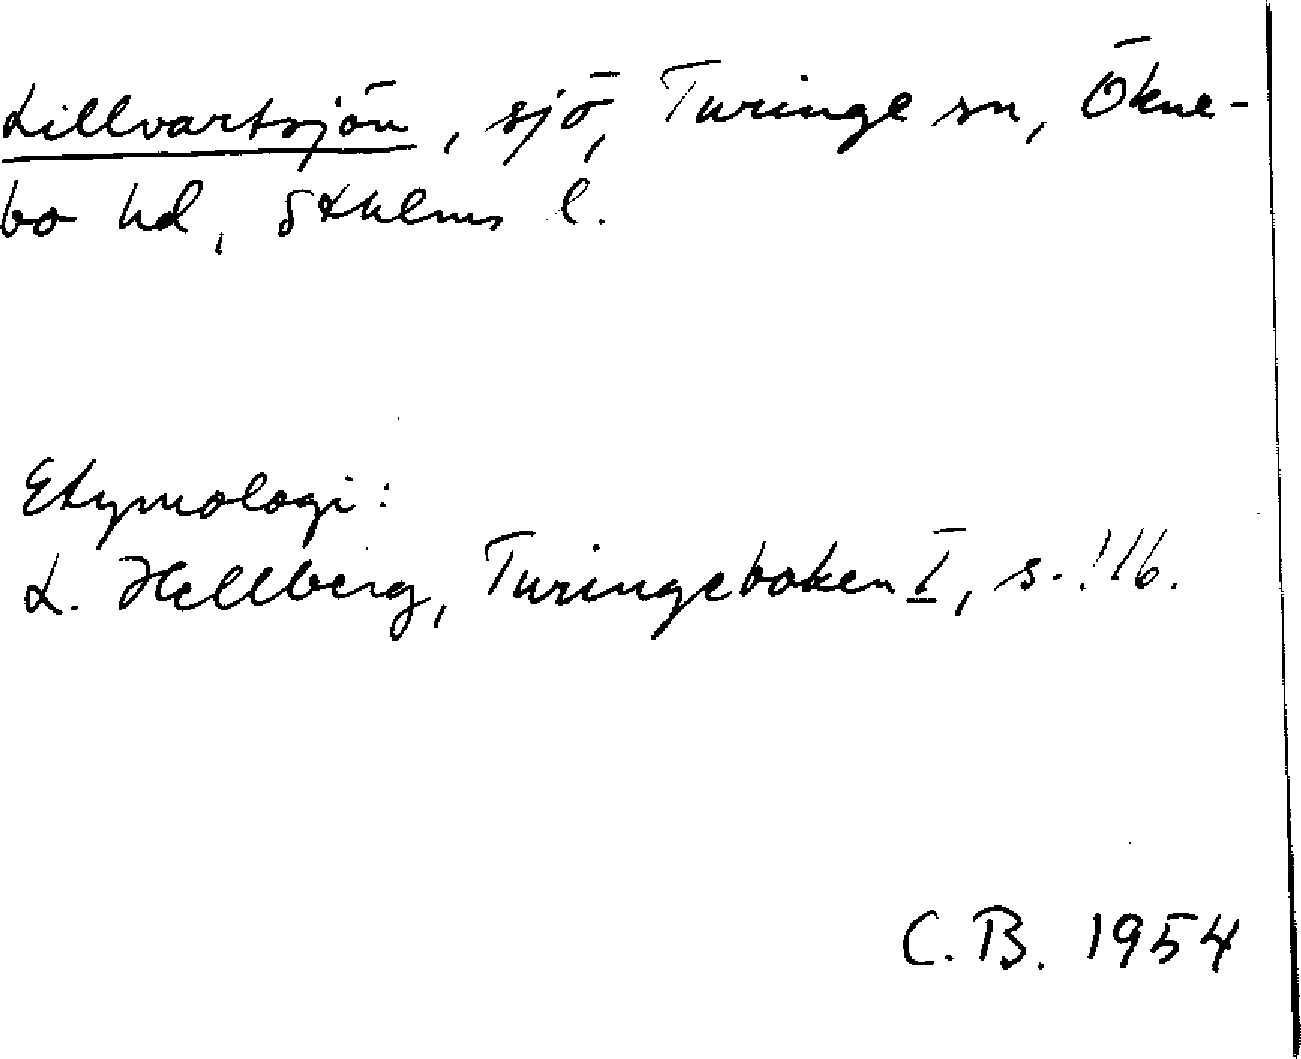 Lillvartsjön, sjö, Turinge sn, Ökne-
bo hd, Sthlms l.
Etymologi:
L. Hellberg, Turingeboken I, s. 116.
C.B. 1954